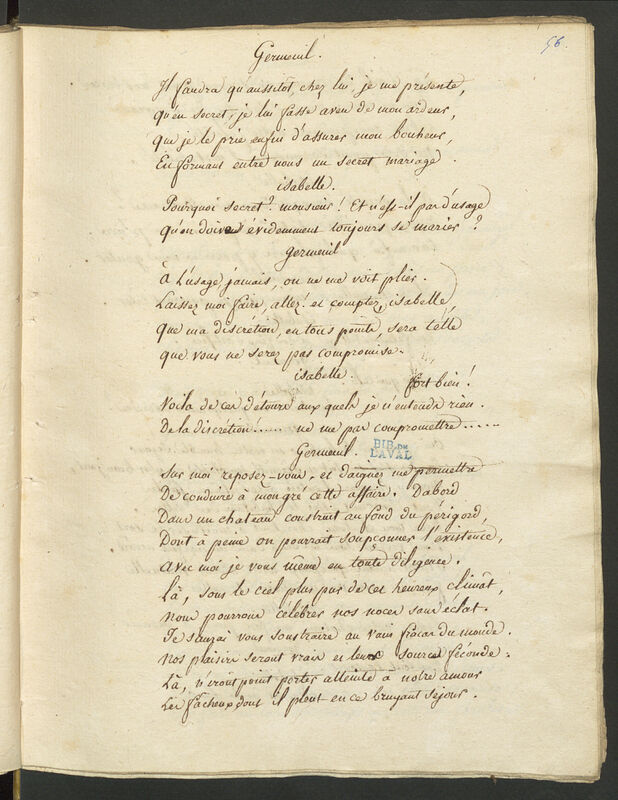 56.
Germeuil.
Il faudra qu'aussitôt, chez lui, je me présente,
qu'en secret, je lui fasse aveu de mon ardeur,
que je le prie enfin d'assurer mon bonheur,
En formant entre nous un secret mariage.
isabelle.
Pourquoi secret? monsieur! Et n'est-il pas d'usage
qu'on doive évidemment toujours se marier?
germeuil
à L'usage, jamais, on ne me voit plier.
Laissez moi faire, allez! et comptez, isabelle,
Que ma discrétion, en tous points, sera télle
que vous ne serez pas compromise.
isabelle. fort bien!
Voila de ces détours aux quels je n'entends rien.
De la discrétion!..... ne me pas compromettre......
Germeuil.
BIB. DE
LAVAL
Sur moi reposez-vous, et daignez me permettre
De conduire à mon gré cette affaire. D'abord
Dans un chateau construit au fond du périgord,
Dont à peine on pourrait soupçonner l'éxistence,
avec moi je vous mêne en toute diligence.
Là, sous le ciel plus pur de cet heureux climat,
Nous pourrons célébrer nos noces sans éclat.
Je saurai vous soustraire au vain fracas du monde.
Nos plaisirs seront vrais et leur source féconde:
Là, n'iront point porter atteinte à notre amour
Les fâcheux dont il pleut en ce bruyant séjour.